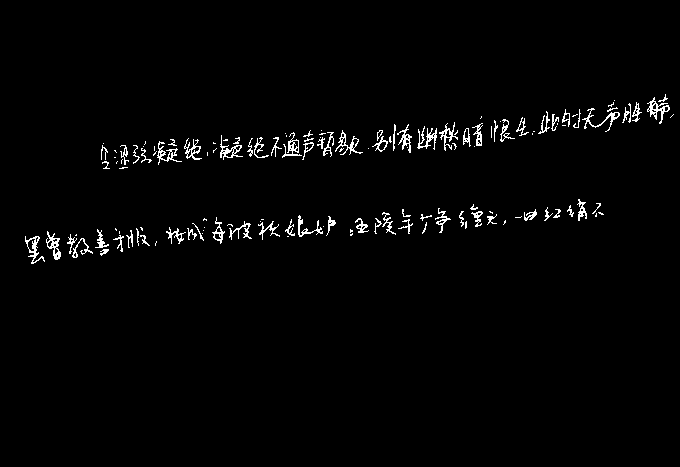 冷涩弦凝绝,凝绝不通声暂歇.别有幽愁暗恨生.此时无声胜有声,
罢曾教善才服,妆成每被秋娘妒.五陵年少争缠头,一曲红绡不